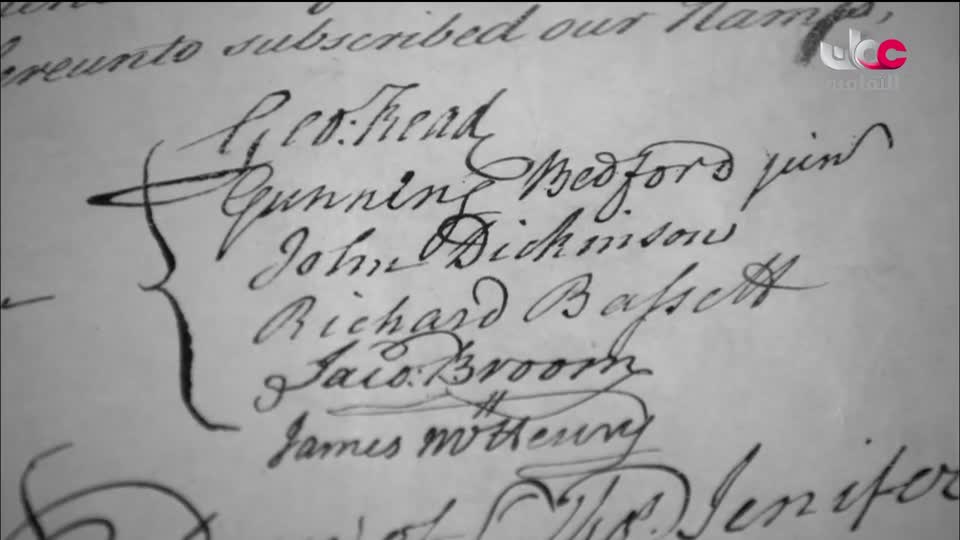 hereunto subscribed our Names,
ubc
الثقافية
Geo: Read
Gunning Bedford jun
John Dickinson
Richard Bassett
Jaco: Broom
James McHenry
Dan of St Thos. Jenifer